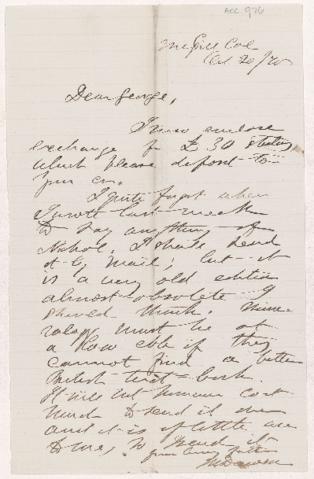 ACC. 976
McGill Col
Oct 20/70
Dear George,
I now enclose
exchange for £30 sterling
which please deposit to
your cr.
I quite forgot when
I wrote last week
to say anything of
Nichol. I shall send
it by mail; but it
is a very old edition
almost obsolete I
should think. Mine-
ralogy must be at
a low ebb if they
cannot find a better
British text-book.
It will cost
much to send it over
and it is of little use
to me, so send it